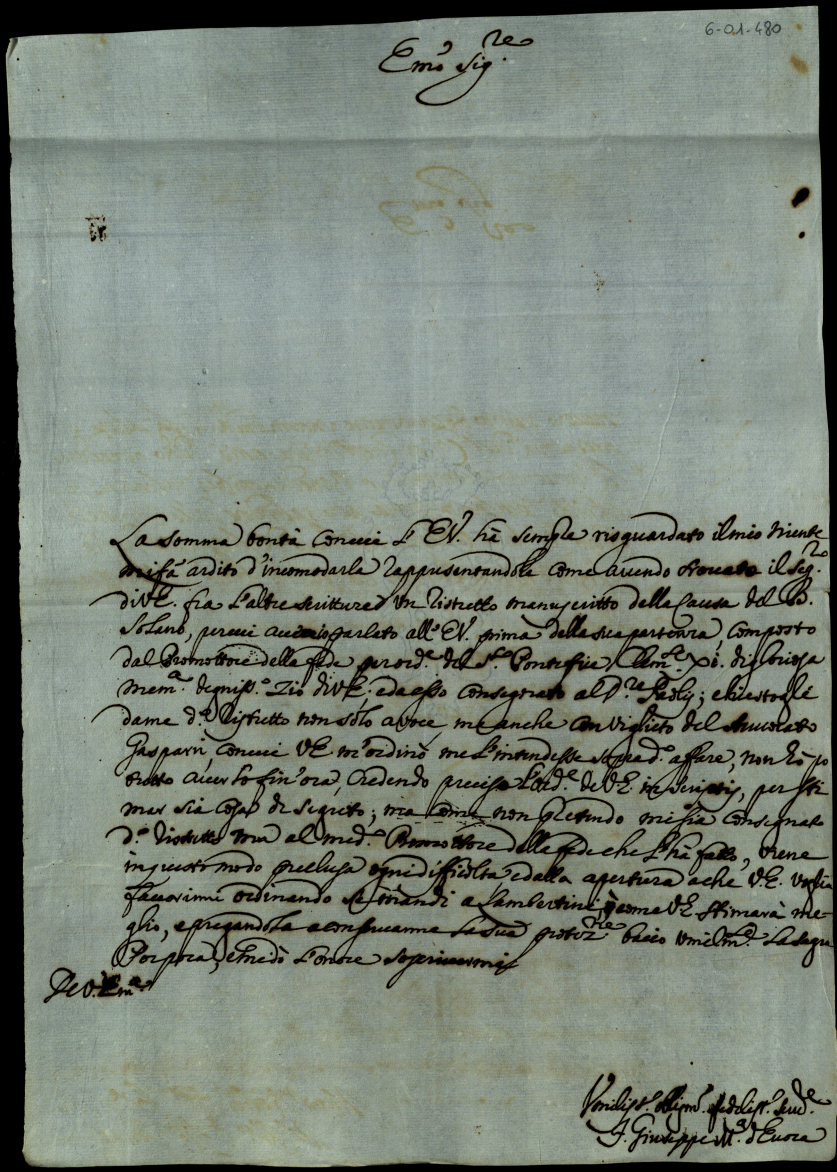 6-01-480
Emo Sigre
La somma bontà con cui l'EV. hà sempre risguardato il mio niente
mi fà ardito d'incomodarla rappresentandole come avendo trovato il Segro
di VE. fra l'altre scritture un ristretto manuscritto della Causa del B.
Solano, per cui avevo parlato all'EV. prima della sua partenza, composto
dal Promottore della fede per orde del So Pontefice Clemte XI. di gloriosa
mema degniso Zio di VE. ed a esso consegnato al Pre Paolis; e chiestogli
da me do ristretto non sólo a voce, ma anche con viglieto del
Gasparri, con cui VE. m'ordinò me l'intendesse sopra do affare, non hà po
tuto averlo fin'ora, credendo precisa l'orde de VE. in scriptis, per sti
mar sia cosa di segreto; ma come non pretendo mi sia consegnato
do ristretto mà al medo Promottore della fede che l'hà fatto, viene
in questo modo preclusa ogni difficoltà e dalla apertura a che VE.
favorirmi ordinando se mandi a Lambertini, ò come VE stimarà me-
glio, e pregandola a conservarme la sua protezne bacio umilme la sagra
Porpora, e mi dò l'onore soprivermi
De V. Ema
Umiliso obligmo fedeliso serve
F. Giuseppe Ma d'Evora